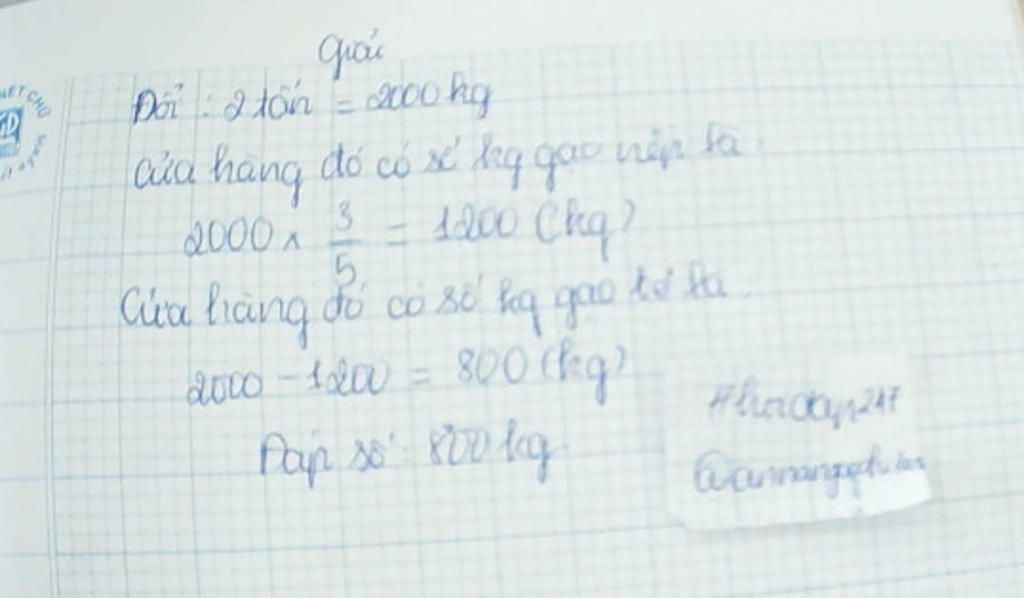 Giải
Đổi : 2 tấn = 2000 kg
Cửa hàng đó có số kg gạo nếp là
2000 x 3/5 = 1200 (kg)
Cửa hàng đó có số kg gạo tẻ là
2000 - 1200 = 800 (kg)
Đáp số : 800 kg
#hoidap247